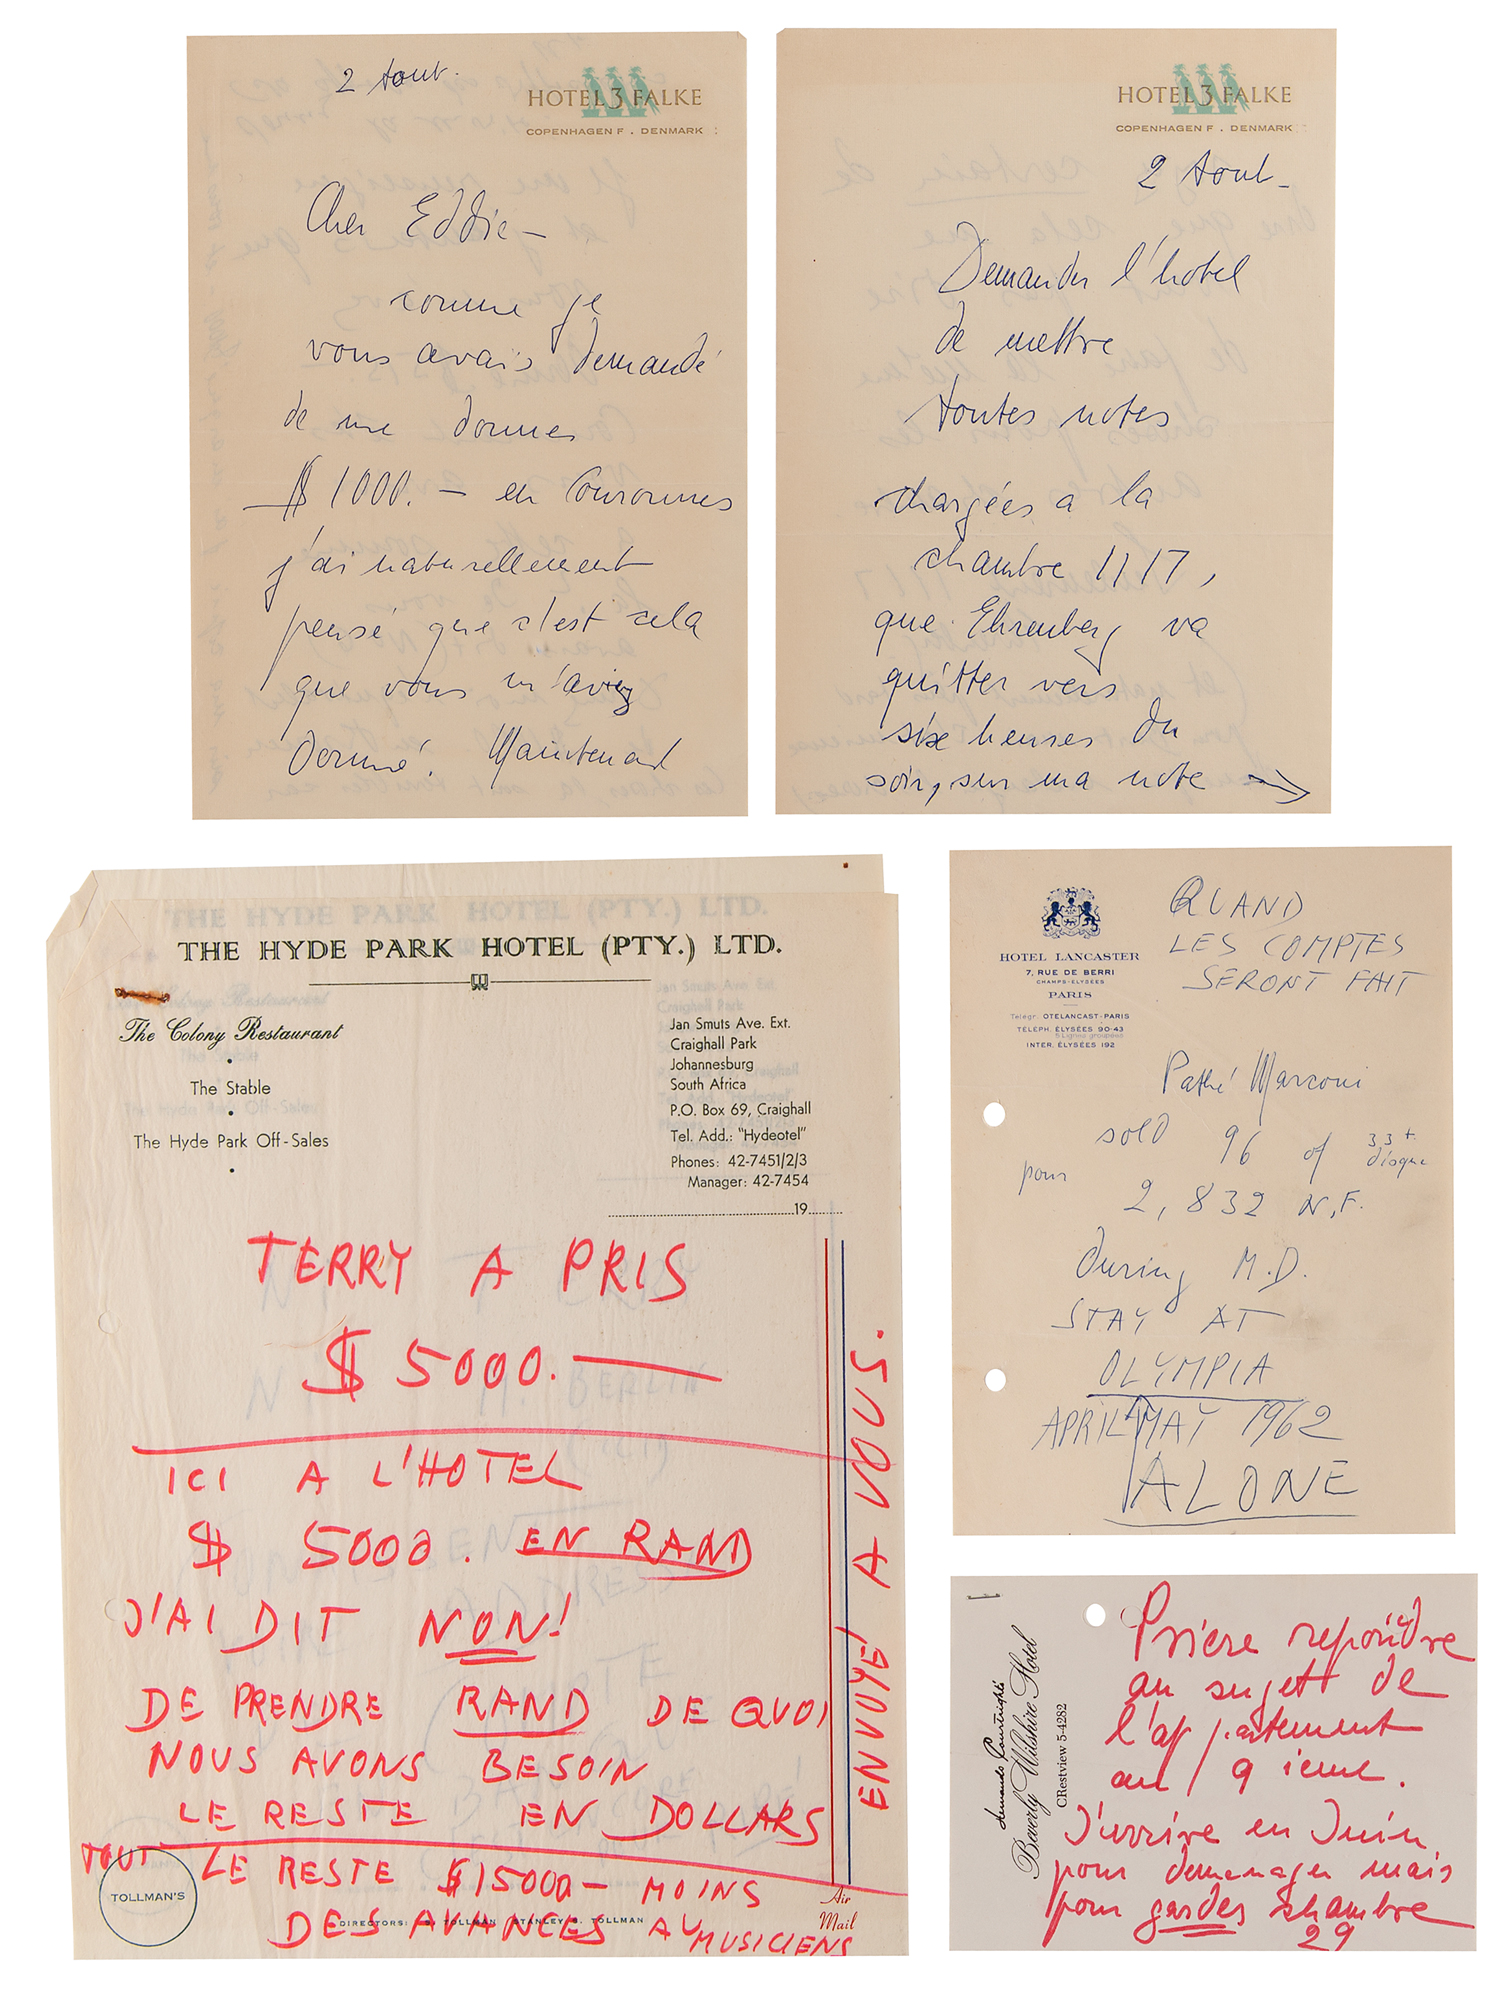 2 Aout.
HOTEL 3 FALKE
COPENHAGEN F . DENMARK
Cher Eddie —
comme je
vous avais demandé
de me donner
$ 1000. — en Couronnes
j'ai naturellement
pensé que c'est cela
que vous m'aviez
donné. Maintenant
HOTEL 3 FALKE
COPENHAGEN F . DENMARK
2 Aout —
Demander l'hotel
de mettre
toutes notes
chargées a la
chambre 1117,
que Ehrenberg va
quitter vers
six heures du
soir, sur ma note →
THE HYDE PARK HOTEL (PTY.) LTD.
The Colony Restaurant
The Stable
The Hyde Park Off-Sales
Jan Smuts Ave. Ext.
Craighall Park
Johannesburg
South Africa
P.O. Box 69, Craighall
Tel. Add.: "Hydeotel"
Phones: 42-7451/2/3
Manager: 42-7454
19
TERRY A PRIS
$ 5000. —
ICI A L'HOTEL
$ 5000. EN RAND
J'AI DIT NON!
DE PRENDRE RAND DE QUOI
NOUS AVONS BESOIN
LE RESTE EN DOLLARS
TOUT LE RESTE $15000 — MOINS
DES AVANCES AU MUSICIENS
ENVOYÉ A VOUS.
TOLLMAN'S
DIRECTORS: S. TOLLMAN STANLEY S. TOLLMAN
Air
Mail
HOTEL LANCASTER
7, RUE DE BERRI
CHAMPS-ELYSÉES
PARIS
Télégr. OTELANCAST-PARIS
TÉLÉPH. ÉLYSÉES 90-43
5 Lignes groupées
INTER. ÉLYSÉES 192
QUAND
LES COMPTES
SERONT FAIT
Pathé Marconi
sold 96 of 33 t.
disque
pour 2,832 N.F.
during M.D.
STAY AT
OLYMPIA
APRIL MAY 1962
ALONE
Hernando Courtright's
Beverly Wilshire Hotel
CRestview 5-4282
Priere repondre
au sujett de
l'appartement
au 9 ieme.
J'arrive en Juin
pour demenager mais
pour garder chambre
29